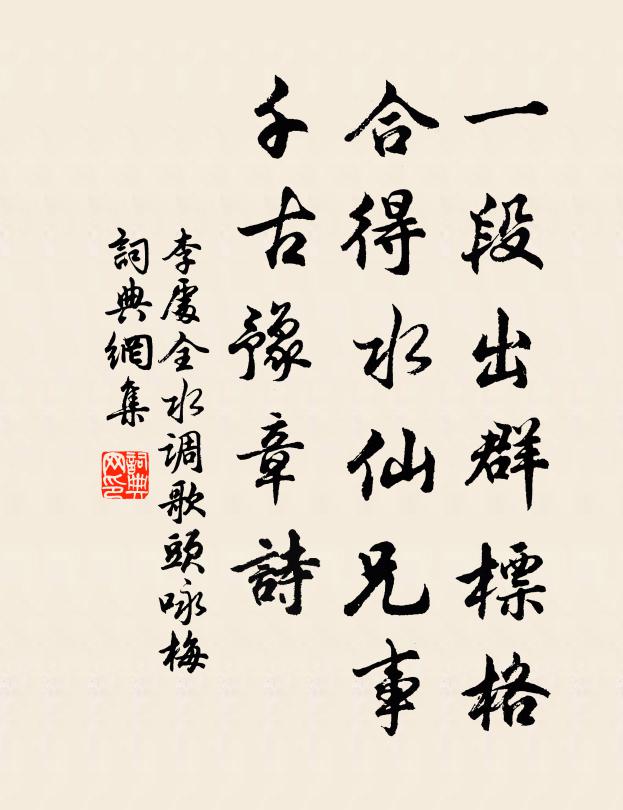 一段出群標格
合得水仙兄事
千古豫章詩
李處全水调歌頭咏梅
詞典網集
詞典网印